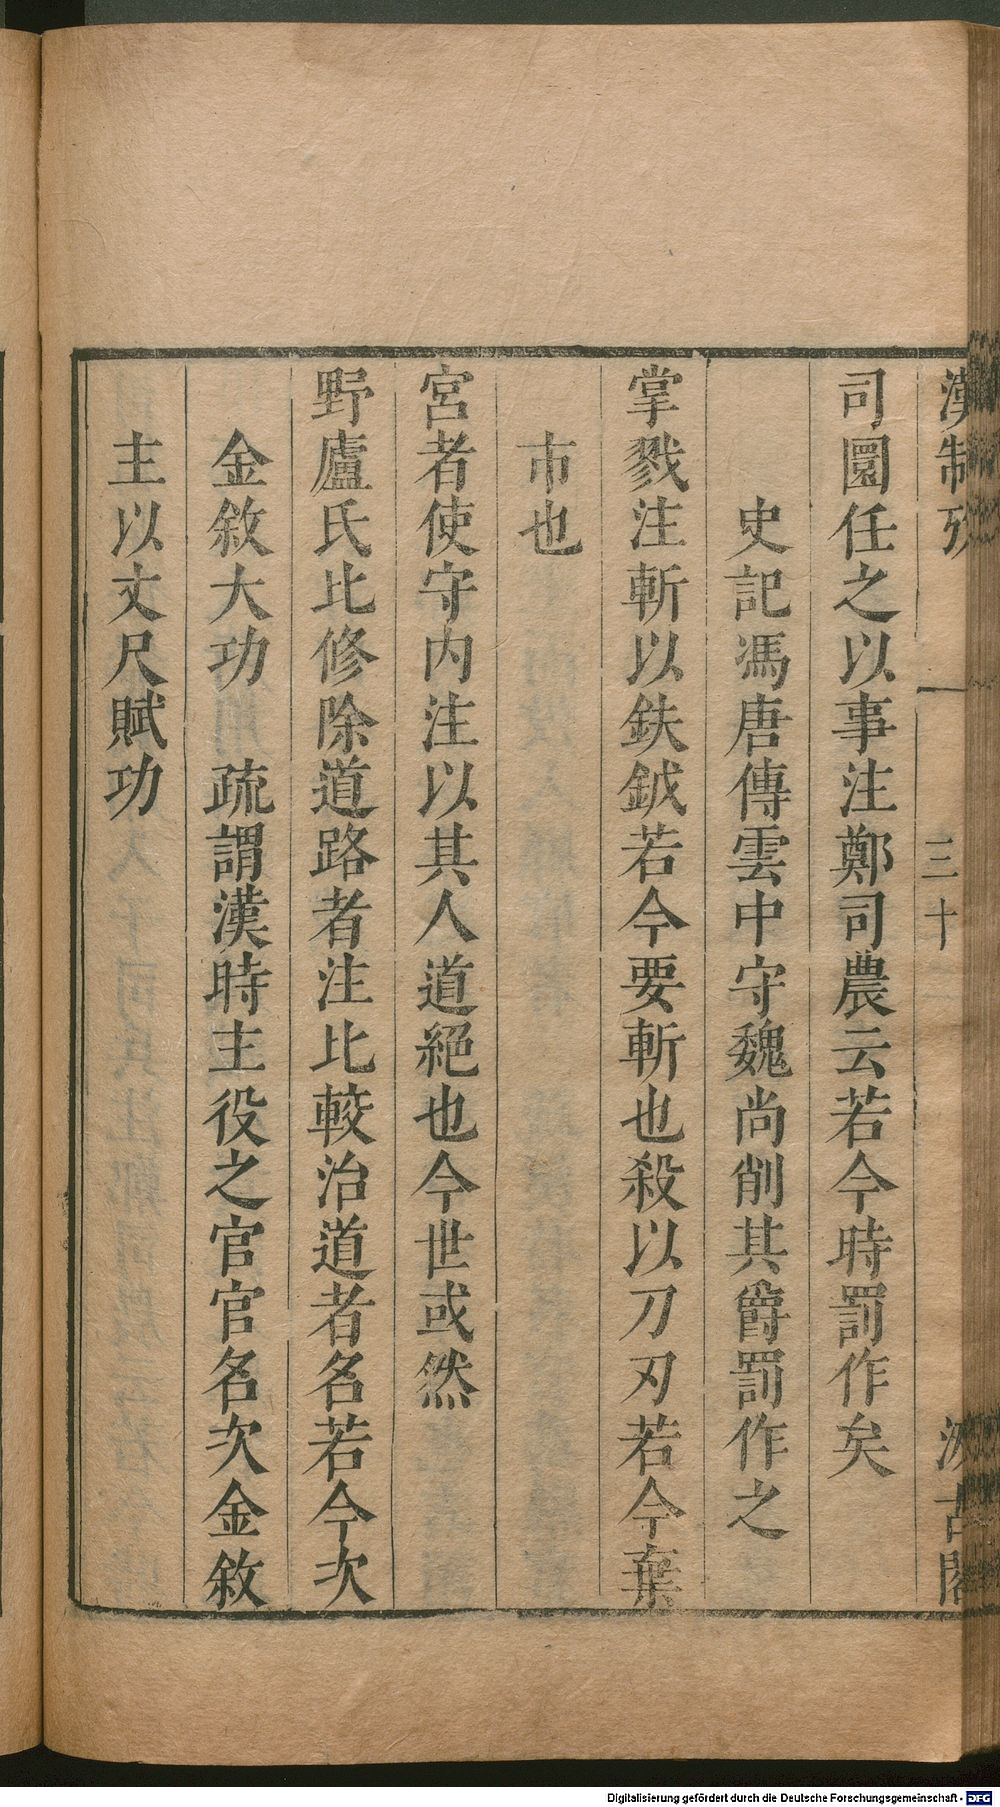 漢制攷
一
三十
汲古閣
司圜任之以事注鄭司農云若今時罰作矣
史記馮唐傳雲中守魏尚削其爵罰作之
掌戮注斬以鈇鉞若今要斬也殺以刀刃若今棄
市也
宮者使守内注以其人道絕也今世或然
野廬氏比修除道路者注比較治道者名若今次
金敘大功 疏謂漢時主役之官官名次金敘
主以丈尺賦功
Digitalisierung gefördert durch die Deutsche Forschungsgemeinschaft - DFG